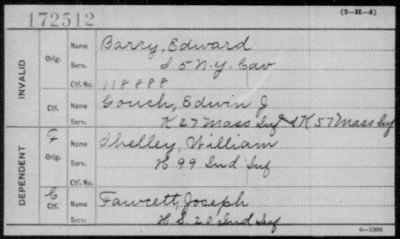 172512
(3-H-4)
INVALID
Orig.
Name Barry, Edward
Serv. I 5 N.Y. Cav
Ctf. No. 118888
Ctf.
Name Gouch, Edwin J
Serv. K 27 Mass Inf & K 57 Mass Inf
DEPENDENT
F
Orig.
Name Shelley, William
Serv. H 99 Ind Inf
Ctf. No.
C
Ctf.
Name Fawcett, Joseph
Serv. 20 Ind Inf